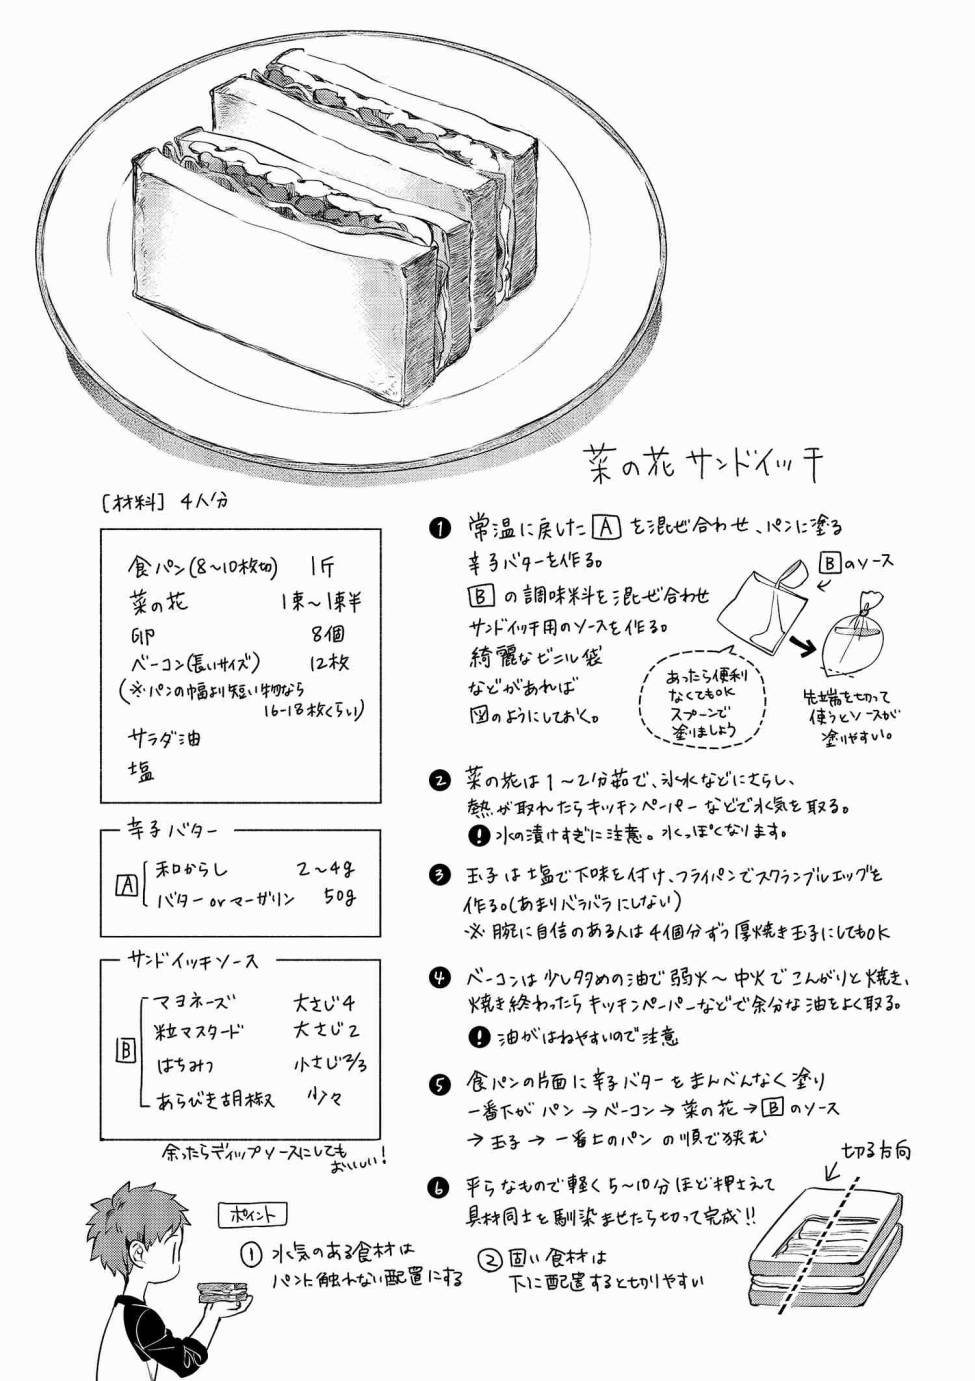 菜の花サンドイッチ
[材料] 4人分
食パン(8~10枚切) 1斤
菜の花 1束~1束半
卵 8個
ベーコン(長いサイズ) 12枚
(※パンの幅より短い物なら
16-18枚くらい)
サラダ油
塩
辛子バター
A
和からし 2~4g
バターorマーガリン 50g
サンドイッチソース
B
マヨネーズ 大さじ4
粒マスタード 大さじ2
はちみつ 小さじ2/3
あらびき胡椒 少々
余ったらディップソースにしても
おいしい!
❶ 常温に戻した A を混ぜ合わせ、パンに塗る
辛子バターを作る。
B の調味料を混ぜ合わせ
サンドイッチ用のソースを作る。
綺麗なビニル袋
などがあれば
図のようにしておく。
あったら便利
なくてもOK
スプーンで
塗りましょう
Bのソース
先端を切って
使うとソースが
塗りやすい。
❷ 菜の花は1~2分茹で、氷水などにさらし、
熱が取れたらキッチンペーパーなどで水気を取る。
! 水の漬けすぎに注意。水っぽくなります。
❸ 玉子は塩で下味を付け、フライパンでスクランブルエッグを
作る。(あまりバラバラにしない)
※腕に自信のある人は4個分ずつ厚焼き玉子にしてもOK
❹ ベーコンは少し多めの油で弱火~中火でこんがりと焼き、
焼き終わったらキッチンペーパーなどで余分な油をよく取る。
! 油がはねやすいので注意
❺ 食パンの片面に辛子バターをまんべんなく塗り
一番下がパン→ベーコン→菜の花→Bのソース
→玉子→一番上のパンの順で挟む
❻ 平らなもので軽く5~10分ほど押さえて
具材同士を馴染ませたら切って完成!!
切る方向
ポイント
① 水気のある食材は
パンに触れない配置にする
② 固い食材は
下に配置すると切りやすい